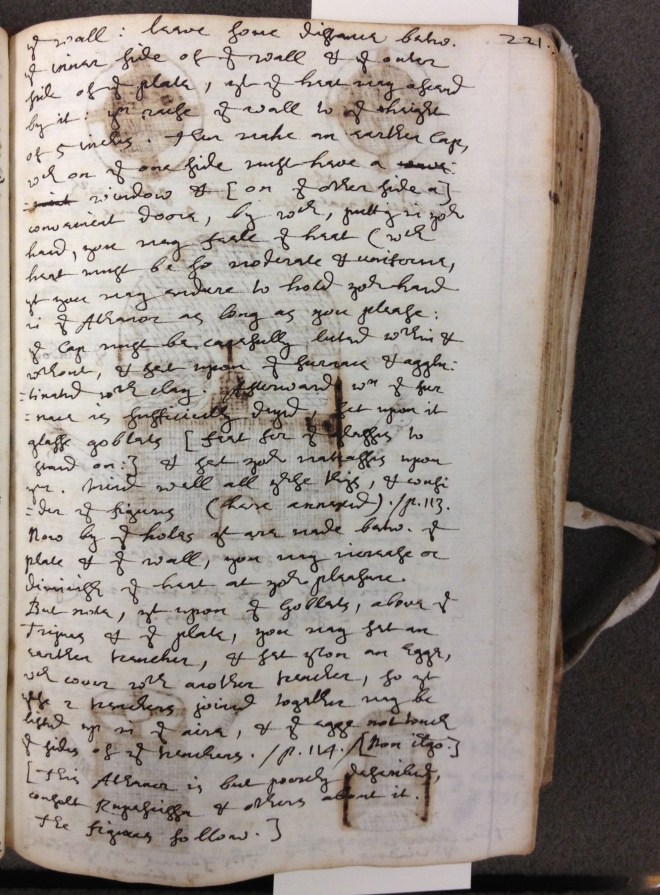 221.
ye wall: leave some distance betw.
ye inner side of ye wall & ye outer
side of ye plate, yt ye heat may ascend
by it: yn raise ye wall to ye height
of 5 inches. Then make an earthen Cap,
wch on ye one side must have a
window & [on ye other side a]
convenient doore, by wch, putting in yor
hand, you may feele ye heat (wch
heat must be so moderate & uniforme,
yt you may endure to hold yor hand
in ye Athanor as long as you please:
ye Cap must be carefully luted within &
without, & set upon ye furnace & agglu:
=tinated wth clay. Afterward, wn ye fur
=nace is sufficiently dryed, set upon it
glasse goblets [feet for ye glasses to
stand on:] & set yor matrasses upon
ym. Mind well all these things, & consi
=der ye figures (here annexed)./p.113.
Now by ye holes yt are made betw. ye
plate & ye wall, you may increase or
diminish ye heat at yor pleasure.
But note, yt upon ye Goblets, above ye
Tripus & ye plate, you may set an
earthen trencher, & set yron an Egge,
wch cover wth another trencher, so yt
these 2 trenchers joined together may be
lifted up in ye aire, & ye egge not touch
ye sides of ye trenchers./p.114./[Non ego.]
[This Athanor is but poorly described,
consult Rupescissa & others about it.
The figures follow.]